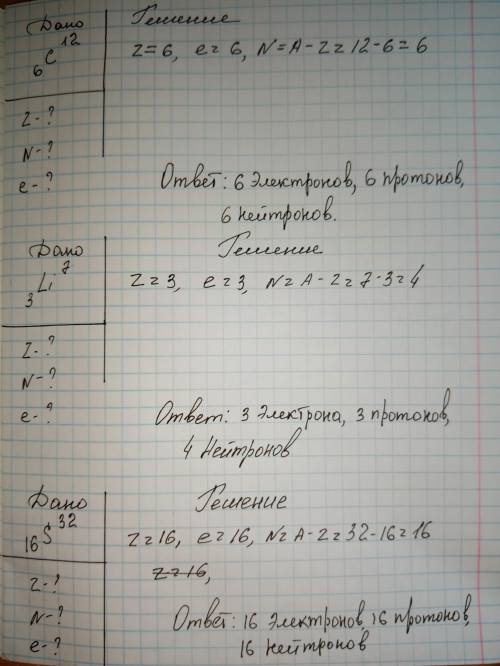 Дано Решение
₆C¹² Z=6, e=6, N=A-Z=12-6=6
Z-?
N-?
e-? Ответ: 6 Электронов, 6 протонов,
6 нейтронов.
Дано Решение
₃Li⁷ Z=3, e=3, N=A-Z=7-3=4
Z-?
N-?
e-? Ответ: 3 Электрона, 3 протонов,
4 Нейтронов
Дано Решение
₁₆S³² Z=16, e=16, N=A-Z=32-16=16
Z=16,
Z-?
N-? Ответ: 16 Электронов, 16 протонов,
e-? 16 Нейтронов